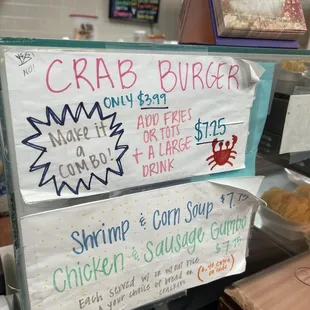 CRAB BURGER
ONLY $3.99
Make it
a
COMBO!
ADD FRIES
OR TOTS
+ A LARGE
DRINK
$7.25
Shrimp & Corn Soup $7.75
Chicken & Sausage Gumbo
$7.75
Each served w/ or w/out rice
& your choice of bread or
crackers